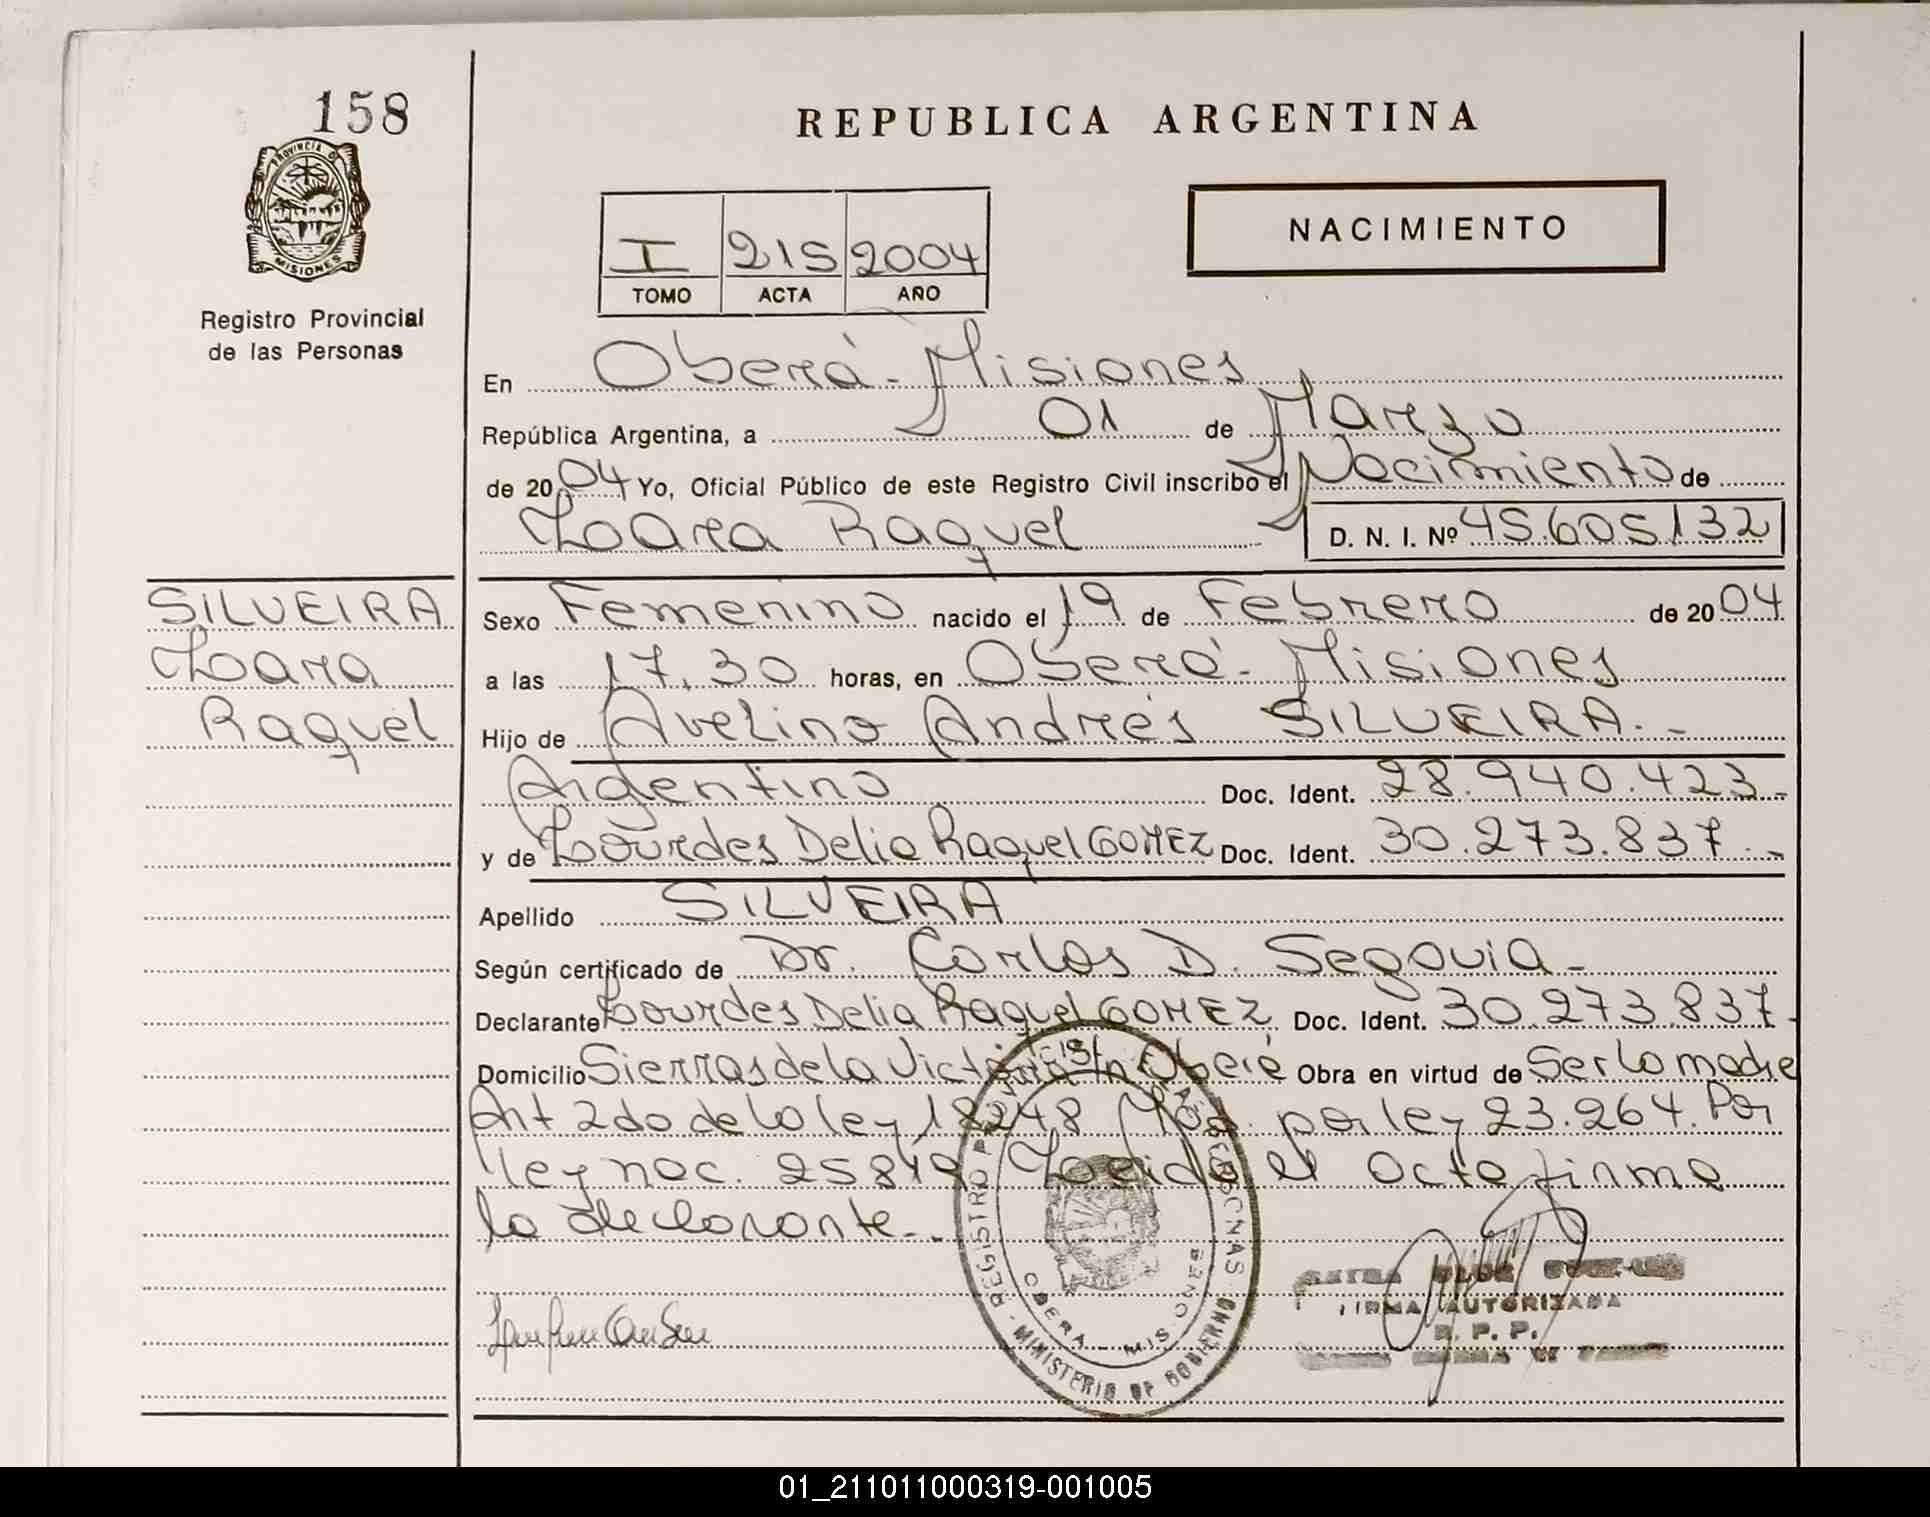 158
PROVINCIA DE
MISIONES
Registro Provincial
de las Personas
REPUBLICA ARGENTINA
NACIMIENTO
I 215 2004
TOMO ACTA AÑO
En Oberá - Misiones
República Argentina, a 01 de Marzo
de 2004 Yo, Oficial Público de este Registro Civil inscribo el Nacimiento de
Loara Raquel D. N. I. Nº 45.605.132
SILVEIRA
Loara
Raquel
Sexo Femenino nacido el 19 de Febrero de 2004
a las 17,30 horas, en Oberá - Misiones
Hijo de Avelino Andrés SILVEIRA.-
Argentino Doc. Ident. 28.940.423-
y de Lourdes Delia Raquel GOMEZ Doc. Ident. 30.273.837.-
Apellido SILVEIRA
Según certificado de Dr. Carlos D. Segovia-
Declarante Lourdes Delia Raquel GOMEZ Doc. Ident. 30.273.837-
Domicilio Sierras de la Victoria Oberá Obra en virtud de Ser la madre
Art 2do de la ley 18248 Mod. por ley 23.264. Por
ley nac. 25819 Leida el acta firma
la declarante.-
REGISTRO PERSONAS
OBERA - MISIONES
MINISTERIO DE GOBIERNO
FIRMA AUTORIZADA
R. P. P.
01_211011000319-001005